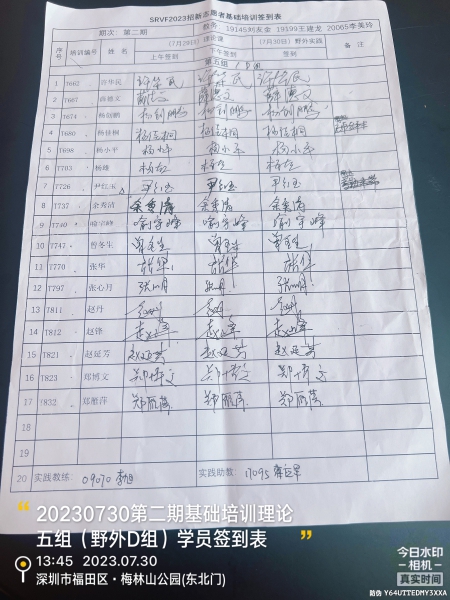 SRVF2023招新志愿者基础培训签到表
期次 第二期 教务 19145刘友金 19399王建龙 20065李美玲
序号 培训编号 姓名 (7月29日)理论课 (7月30日)野外实践 备注
上午签到 下午签到 下午签到
第五组 / D组
1 T662 许华民 许华民 许华民 许华民
2 T667 薛德文
3 T674 杨钊鹏 杨钊鹏 杨钊鹏 杨钊鹏
4 T680 杨佳桐 杨佳桐 杨佳桐 杨佳桐
5 T698 杨小平 杨小平 杨小平 杨小平
6 T703 杨雄
7 T726 尹红玉 尹红玉 尹红玉 尹红玉
8 T737 余秀清 余秀清 余秀清 余秀清
9 T740 喻宇峰 喻宇峰 喻宇峰 喻宇峰
10 T747 曾冬生 曾冬生 曾冬生 曾冬生
11 T770 张华 张华 张华 张华
12 T797 张心月
13 T811 赵丹 赵丹 赵丹 赵丹
14 T812 赵锋 赵锋 赵锋 赵锋
15 T821 赵延芳 赵延芳 赵延芳 赵延芳
16 T823 郑博文 郑博文 郑博文 郑博文
17 T832 郑雁萍 郑雁萍 郑雁萍 郑雁萍
18
19
20 实践教练: 09070 李旭 实践助教: 17095
20230730第二期基础培训理论
五组（野外D组）学员签到表
13:45 2023.07.30
深圳市福田区·梅林山公园(东北门)
今日水印
-相机-
真实时间
防伪 Y64UTTEDMY3XXA